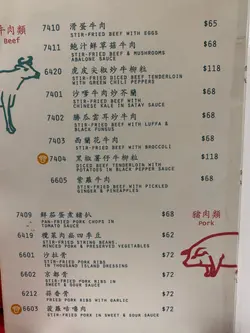 牛肉類
Beef
7410 滑蛋牛肉 $65
STIR-FRIED BEEF WITH EGGS
7411 鮑汁鮮草菇牛肉 $68
STIR-FRIED BEEF & MUSHROOMS
ABALONE SAUCE
6420 虎皮尖椒炒牛柳粒 $118
STIR-FRIED DICED BEEF TENDERLOIN
WITH GREEN CHILI PEPPERS
7401 沙嗲牛肉炒芥蘭 $68
STIR-FRIED BEEF WITH
CHINESE KALE IN SATAY SAUCE
7402 勝瓜雲耳炒牛肉 $68
STIR-FRIED BEEF WITH LUFFA &
BLACK FUNGUS
7403 西蘭花牛肉 $68
STIR-FRIED BEEF WITH BROCCOLI
7404 黑椒薯仔牛柳粒 $118
DICED BEEF TENDERLOIN WITH
POTATOES IN BLACK PEPPER SAUCE
6605 紫蘿牛肉 $68
STIR-FRIED BEEF WITH PICKLED
GINGER & PINEAPPLES
豬肉類
Pork
7409 鮮茄蛋煮豬扒 $68
PAN-FRIED PORK CHOPS IN
TOMATO SAUCE
6419 欖菜肉崧四季豆 $62
STIR-FRIED STRING BEANS
MINCED PORK & PRESERVED VEGETABLES
6601 沙拉骨 $72
STIR-FRIED PORK RIBS
IN THOUSAND ISLAND DRESSING
6602 京都骨 $72
STIR-FRIED PORK RIBS IN
SWEET & SOUR SAUCE
6212 蒜香骨 $72
FRIED PORK RIBS WITH GARLIC
6603 菠蘿咕嚕肉 $72
STIR-FRIED PORK IN SWEET & SOUR SAUCE